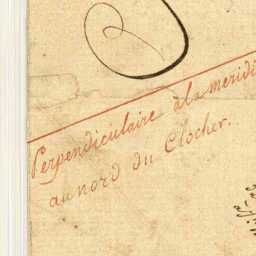 Perpendiculaire à la meridi
au nord du Clocher.